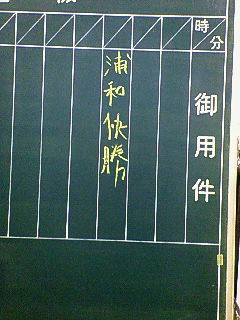 時分
御用件
浦和快勝